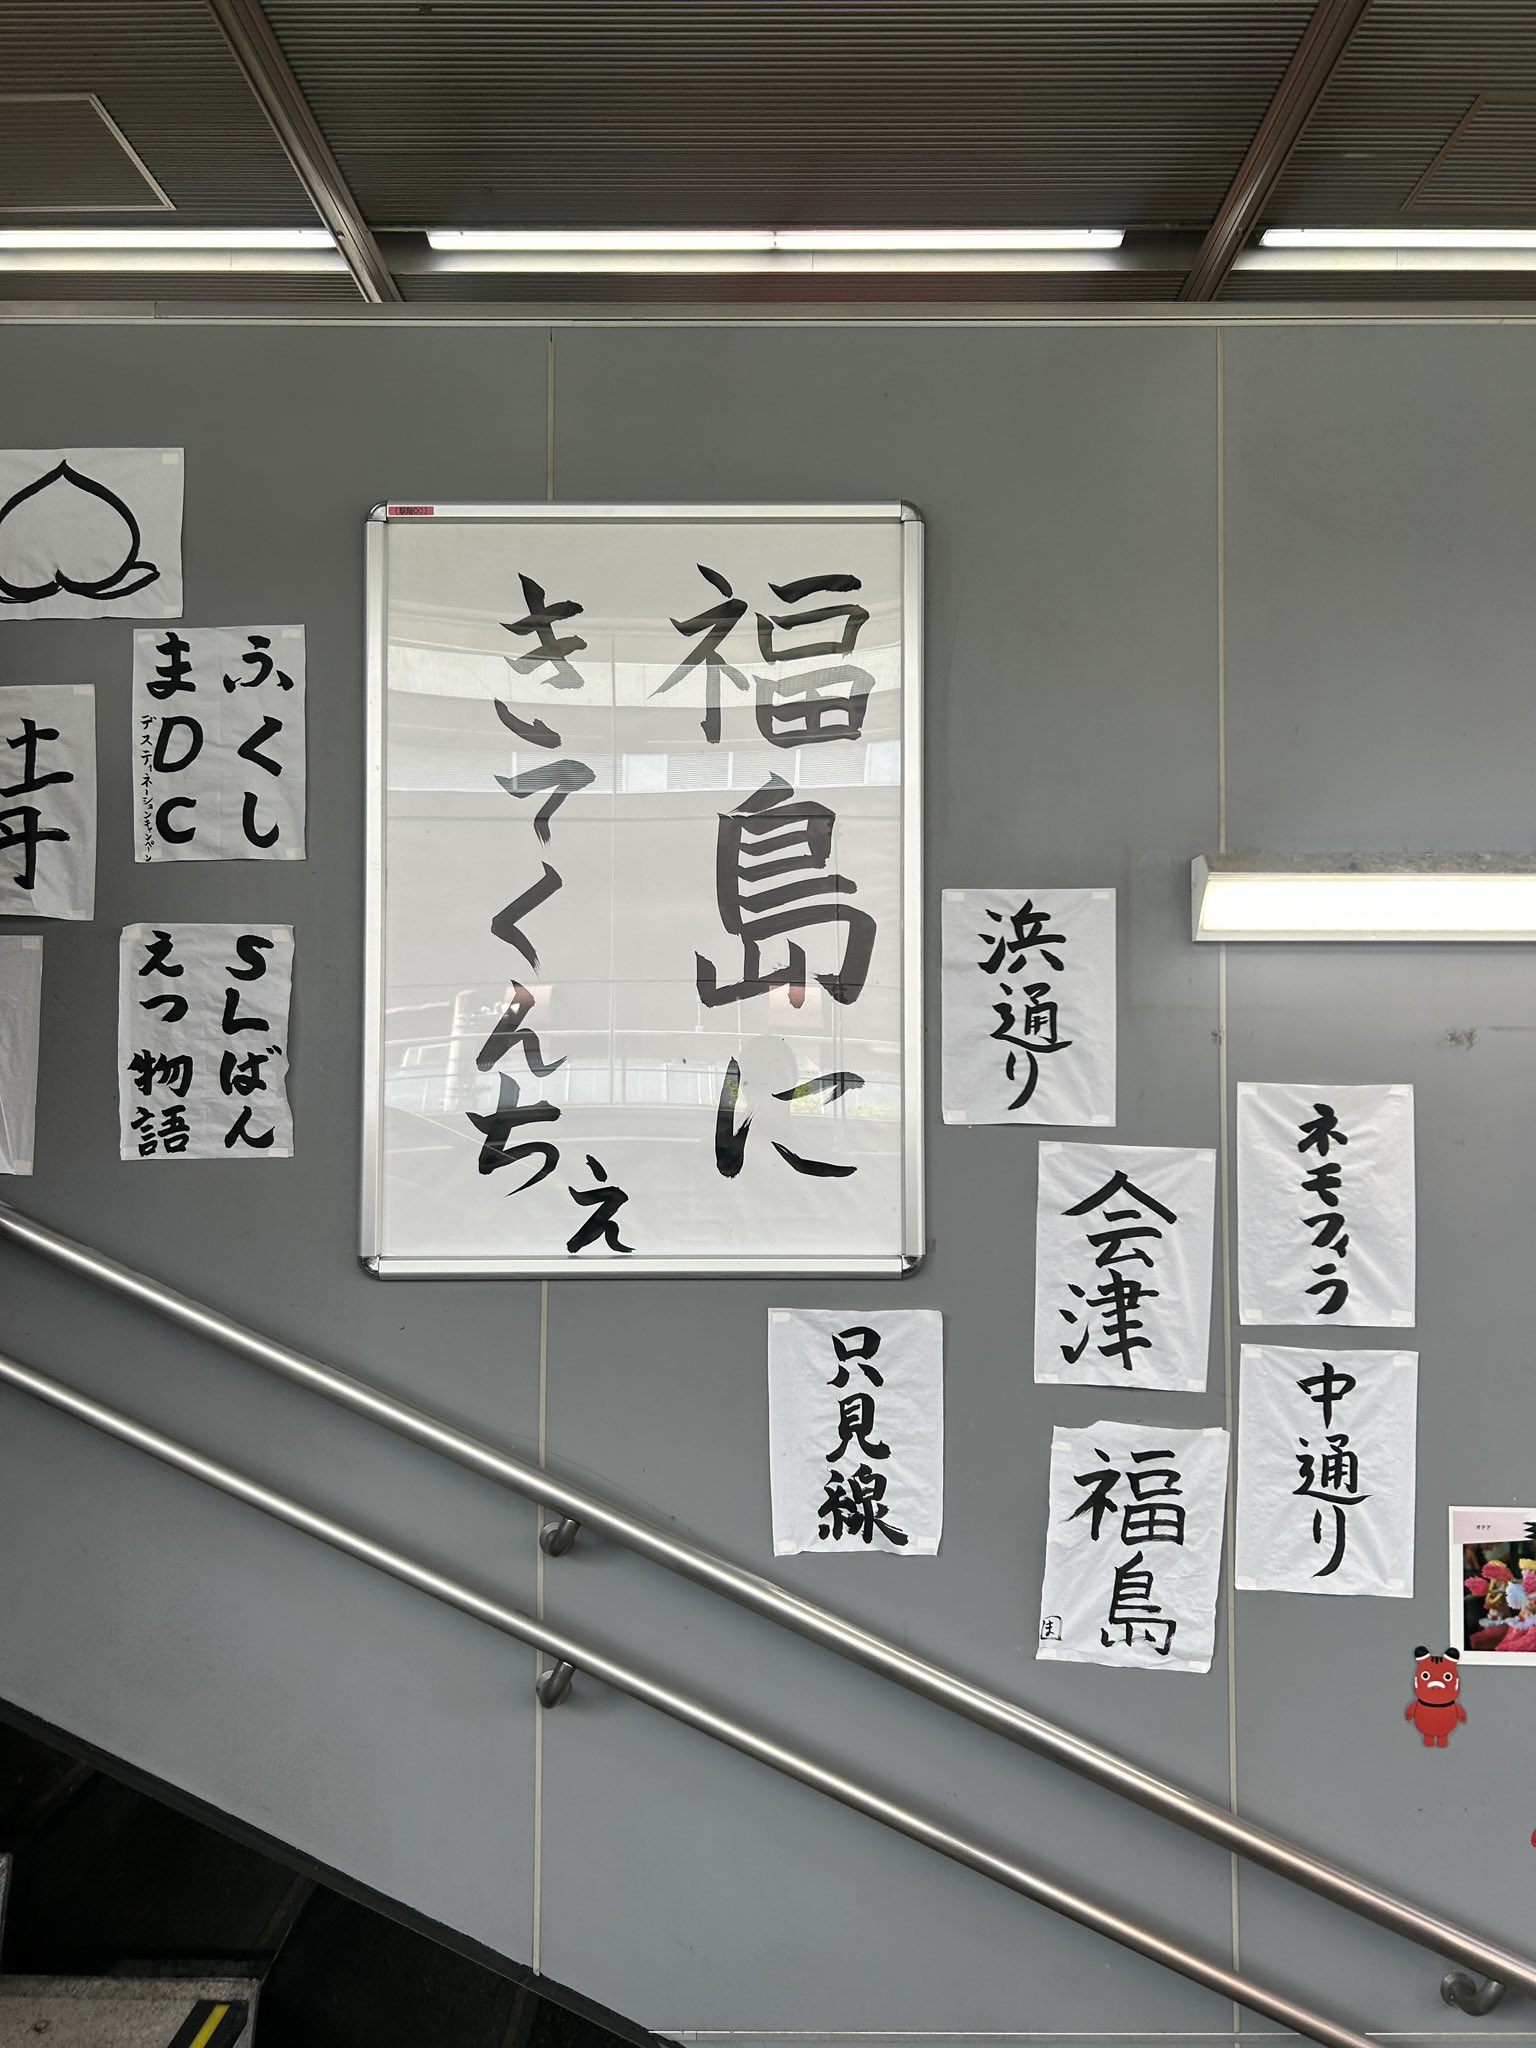 福島に
きてくんちぇ
ふくし
まDC
デスティネーションキャンペーン
SLばん
えつ物語
浜通り
ネモフィラ
会津
中通り
只見線
福島
ま